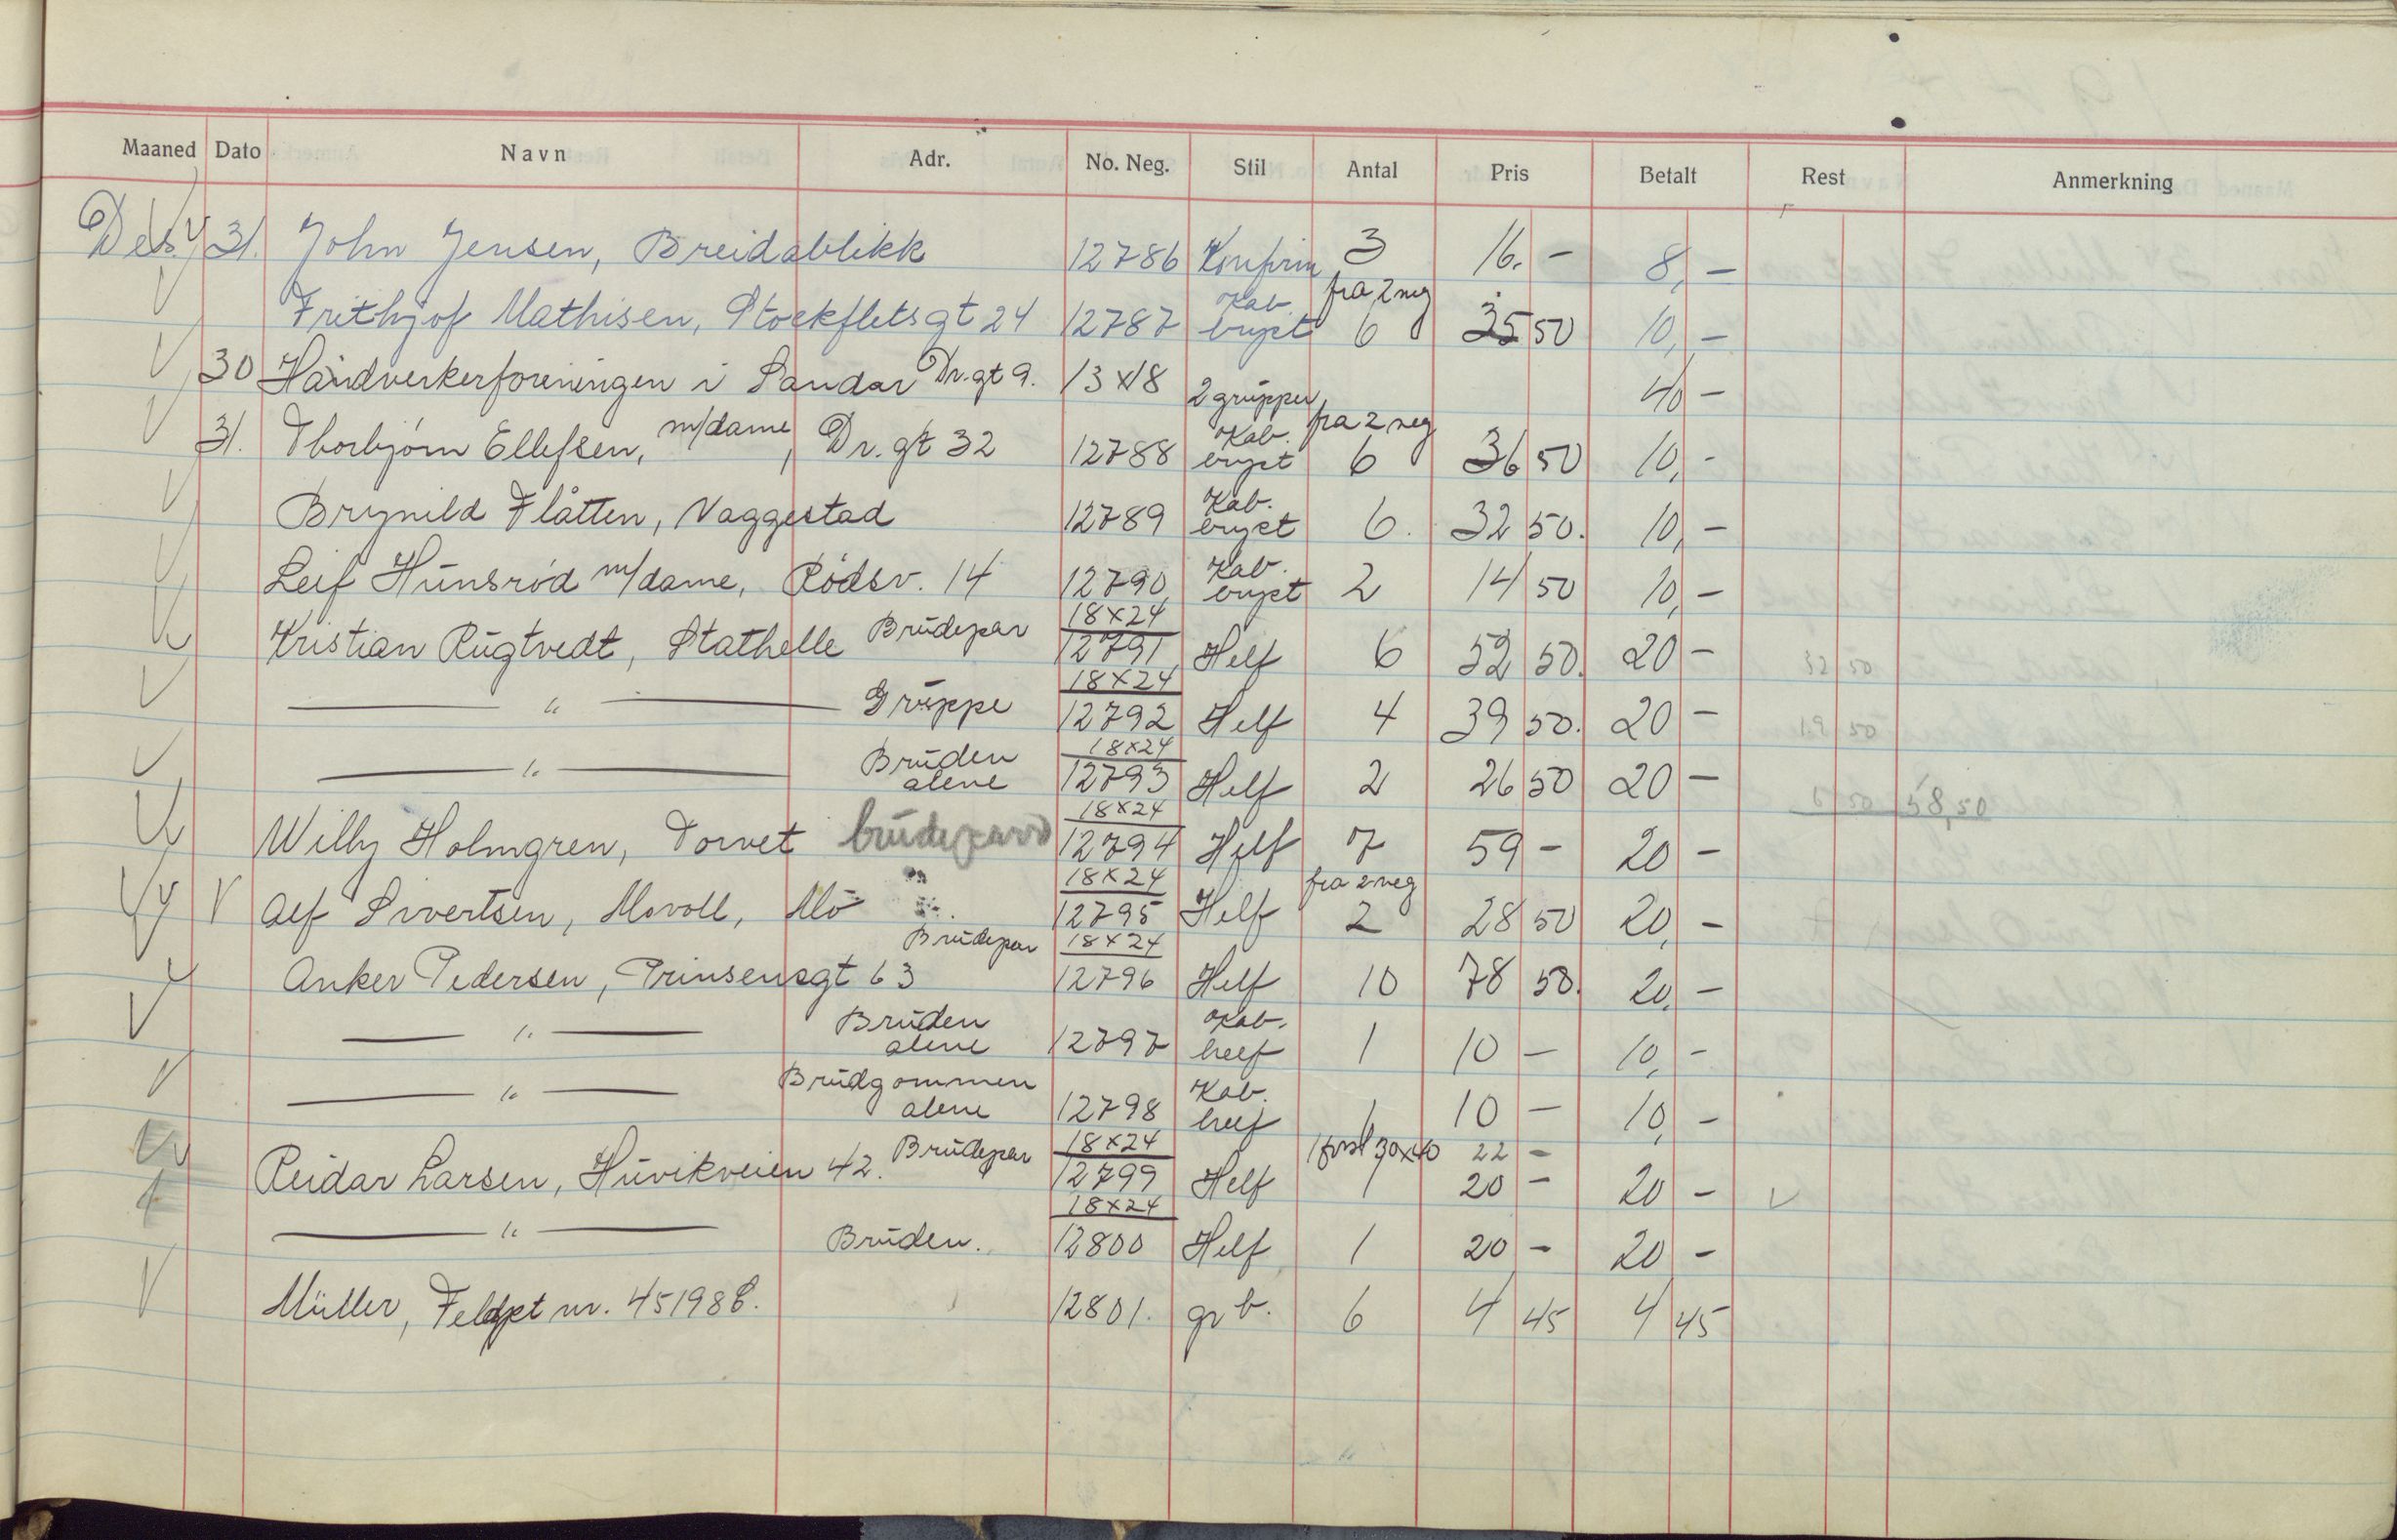 Maaned Dato Navn Adr. No. Neg. Stil Antal Pris Betalt Rest Anmerkning
Des. 31. John Jensen, Breidablikk 12786 Konfirm 3 16. - 8, -
Frithjof Mathisen, Stockfletsgt 24 12787 Kab. bryst fra 2 neg 6 35 50 10, -
30 Håndverkerforeningen i Sandar Dr. gt 9. 13x18 2 grupper 40 -
31. Thorbjørn Ellefsen, m/dame, Dr. gt 32 12788 Kab. bryst fra 2 neg 6 36 50 10, -
Brynild Flåtten, Vaggestad 12789 Kab. bryst 6. 32 50. 10, -
Leif Hunsrød m/dame, Rødsv. 14 12790 Kab. bryst 2 14 50 10, -
Kristian Rugtvedt, Stathelle Brudepar 18x24 12791 Helf 6 52 50. 20 - 32 50
— " — Gruppe 18x24 12792 Helf 4 39 50. 20 - 19 50
— " — Bruden alene 18x24 12793 Helf 2 26 50 20 - 6 50 58,50
Willy Holmgren, Torvet 18x24 12794 Helf 7 59 - 20 -
Alf Sivertsen, Movoll, Mo 18x24 12795 Helf fra 2 neg 2 28 50 20, -
Anker Pedersen, Prinsensgt 63 Brudepar 18x24 12796 Helf 10 78 50. 20, -
— " — Bruden alene 12797 Kab. helf 1 10 - 10, -
— " — Brudgommen alene 12798 Kab. helf 1 10 - 10, -
Reidar Larsen, Huvikveien 42. Brudepar 18x24 12799 Helf 1 forst 30x40 22 -
1 20 - 20 -
— " — Bruden. 18x24 12800 Helf 1 20 - 20 -
Müller, Feldpt nr. 45198 12801. gr b. 6 4 45 4 45